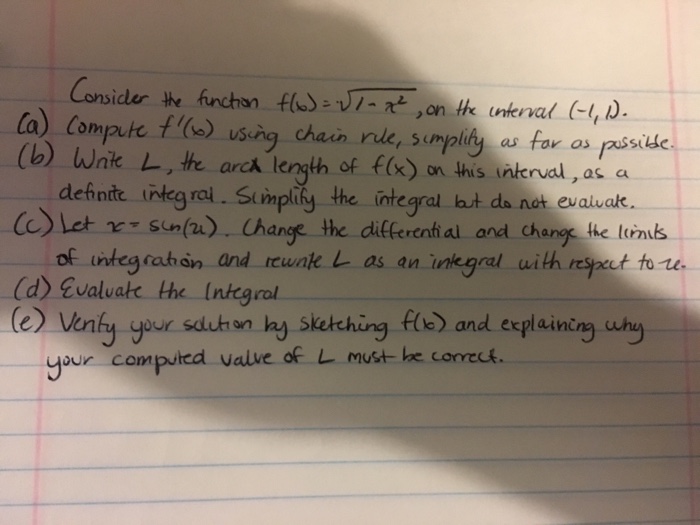 Consider the function f(x) = √1-x², on the interval (-1, 1).
(a) Compute f'(x) using chain rule, simplify as far as possible.
(b) Write L, the arc length of f(x) on this interval, as a
definite integral. Simplify the integral but do not evaluate.
(c) Let x = sin(u). Change the differential and change the limits
of integration and rewrite L as an integral with respect to u.
(d) Evaluate the Integral
(e) Verify your solution by sketching f(x) and explaining why
your computed value of L must be correct.